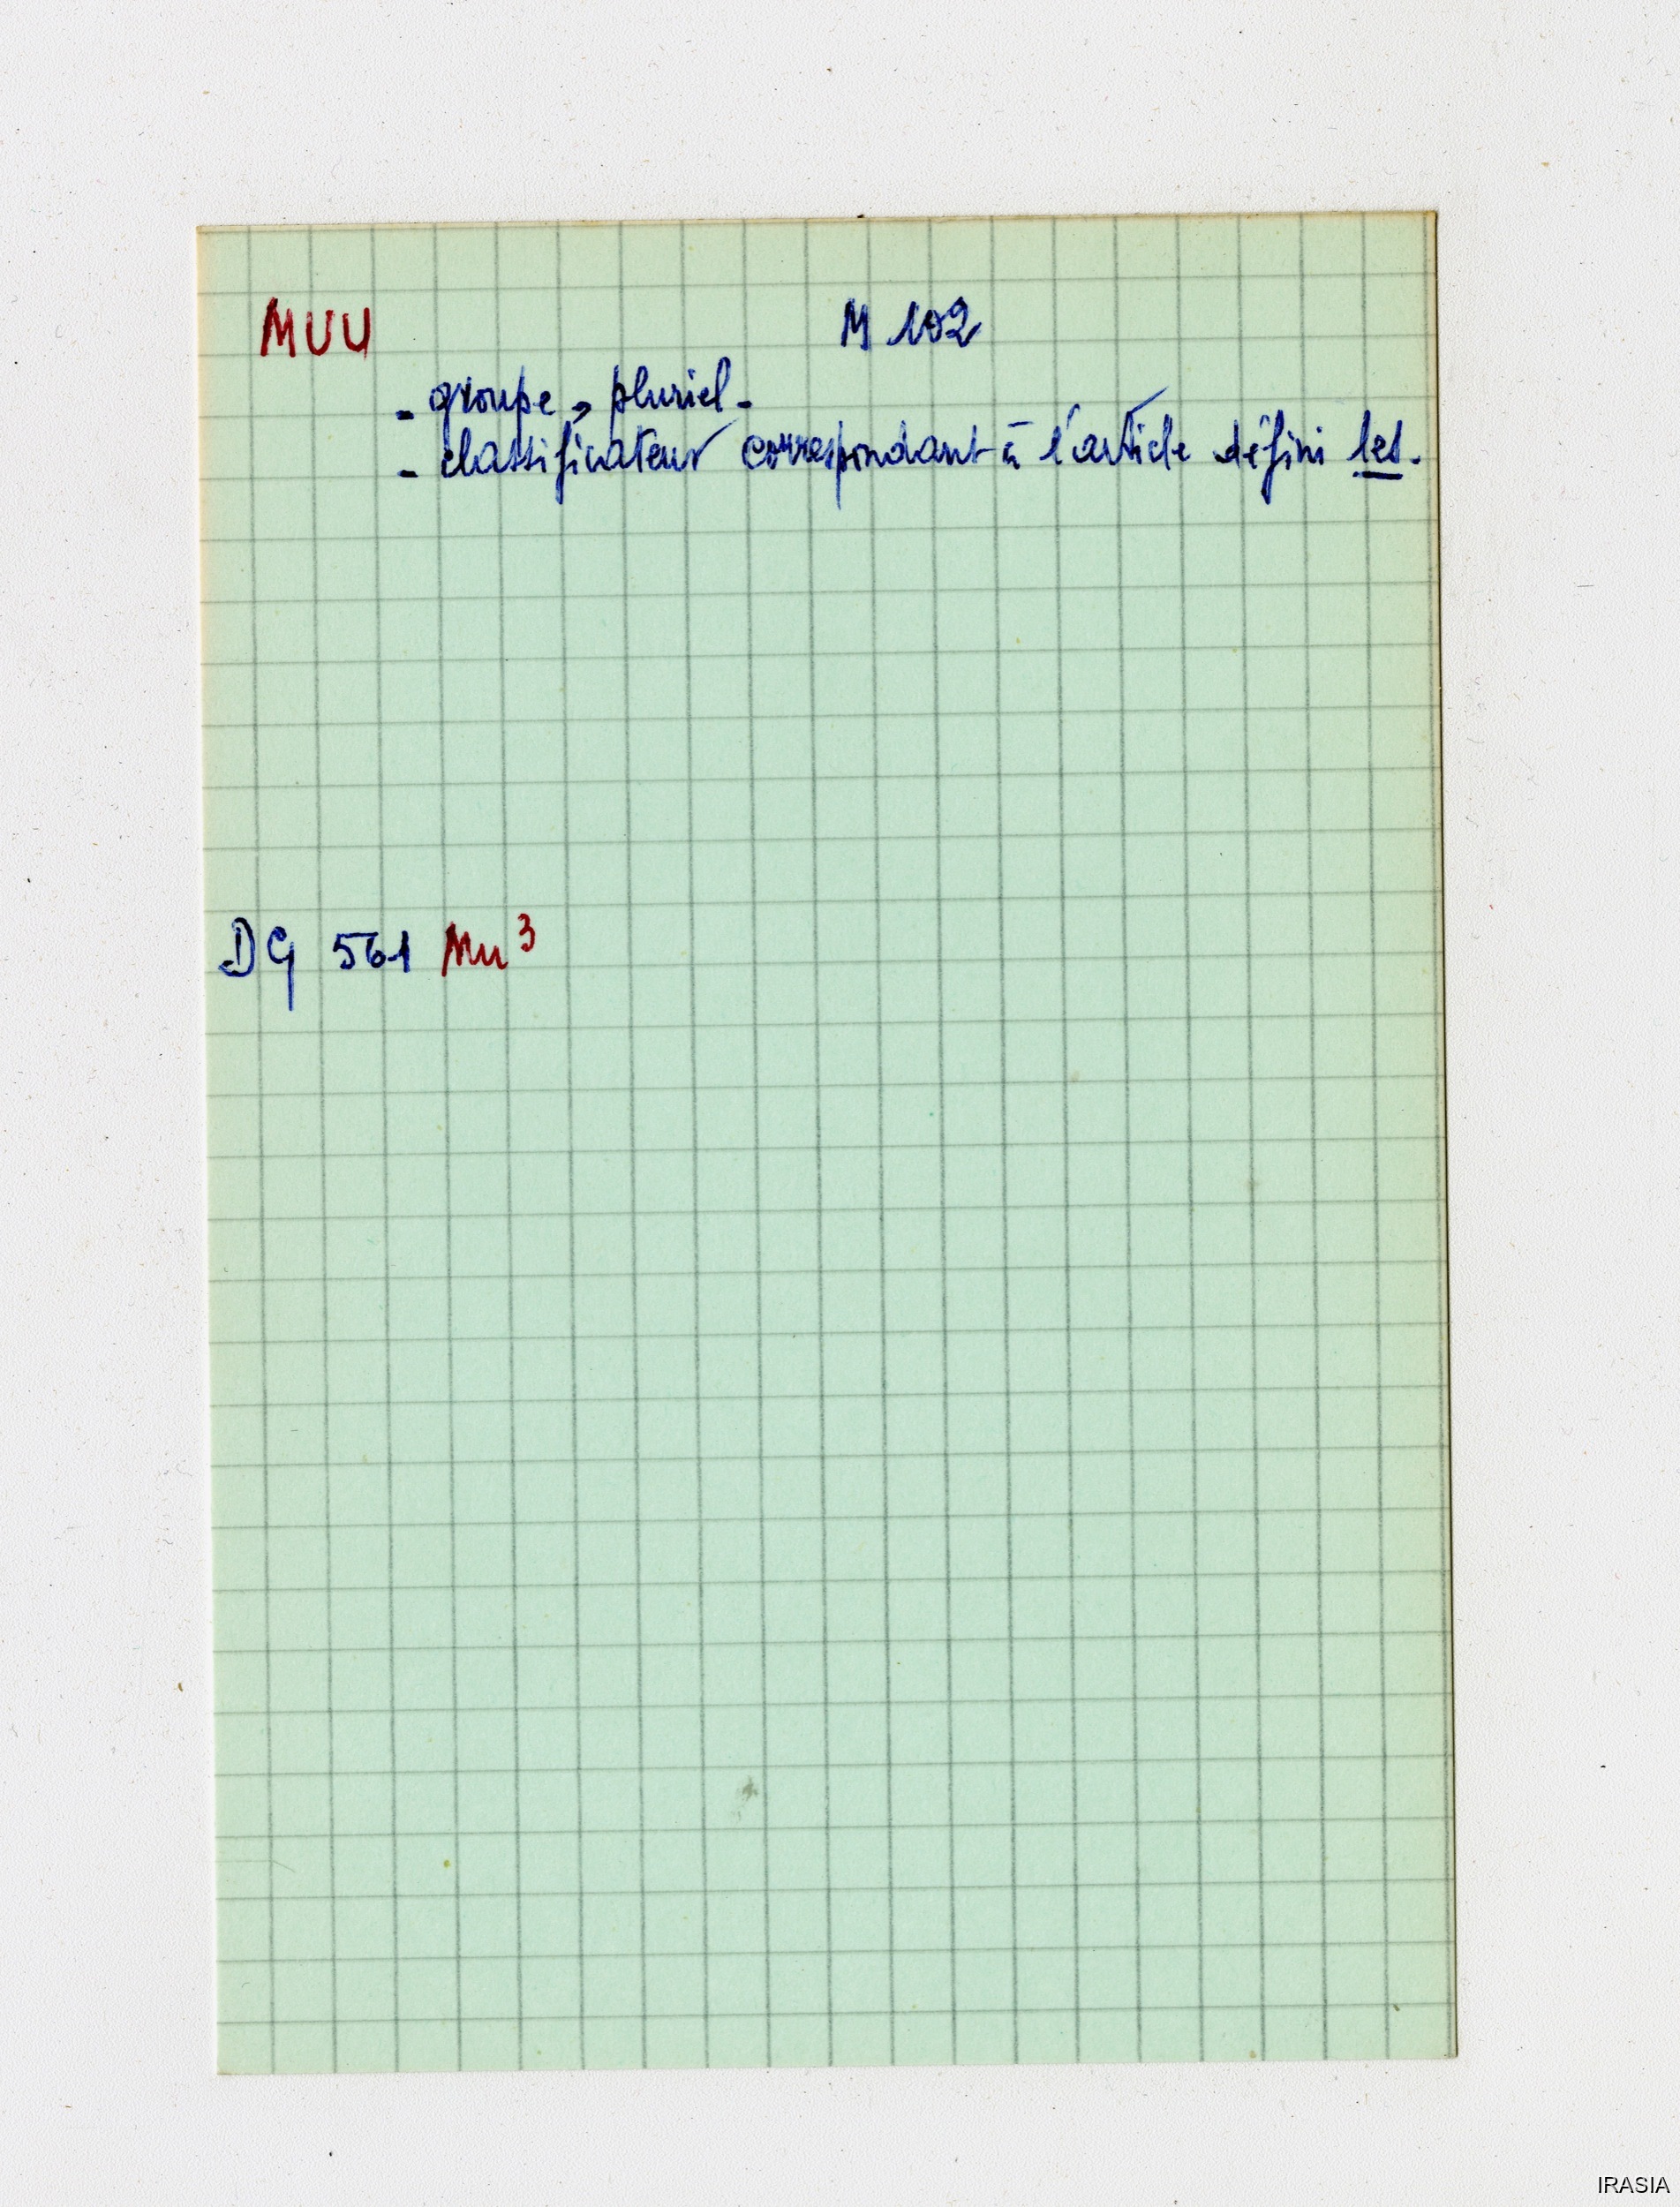 MUU M 102
- groupe, pluriel -
- classificateur correspondant à l'article défini les.
DG 561 Mu³
IRASIA